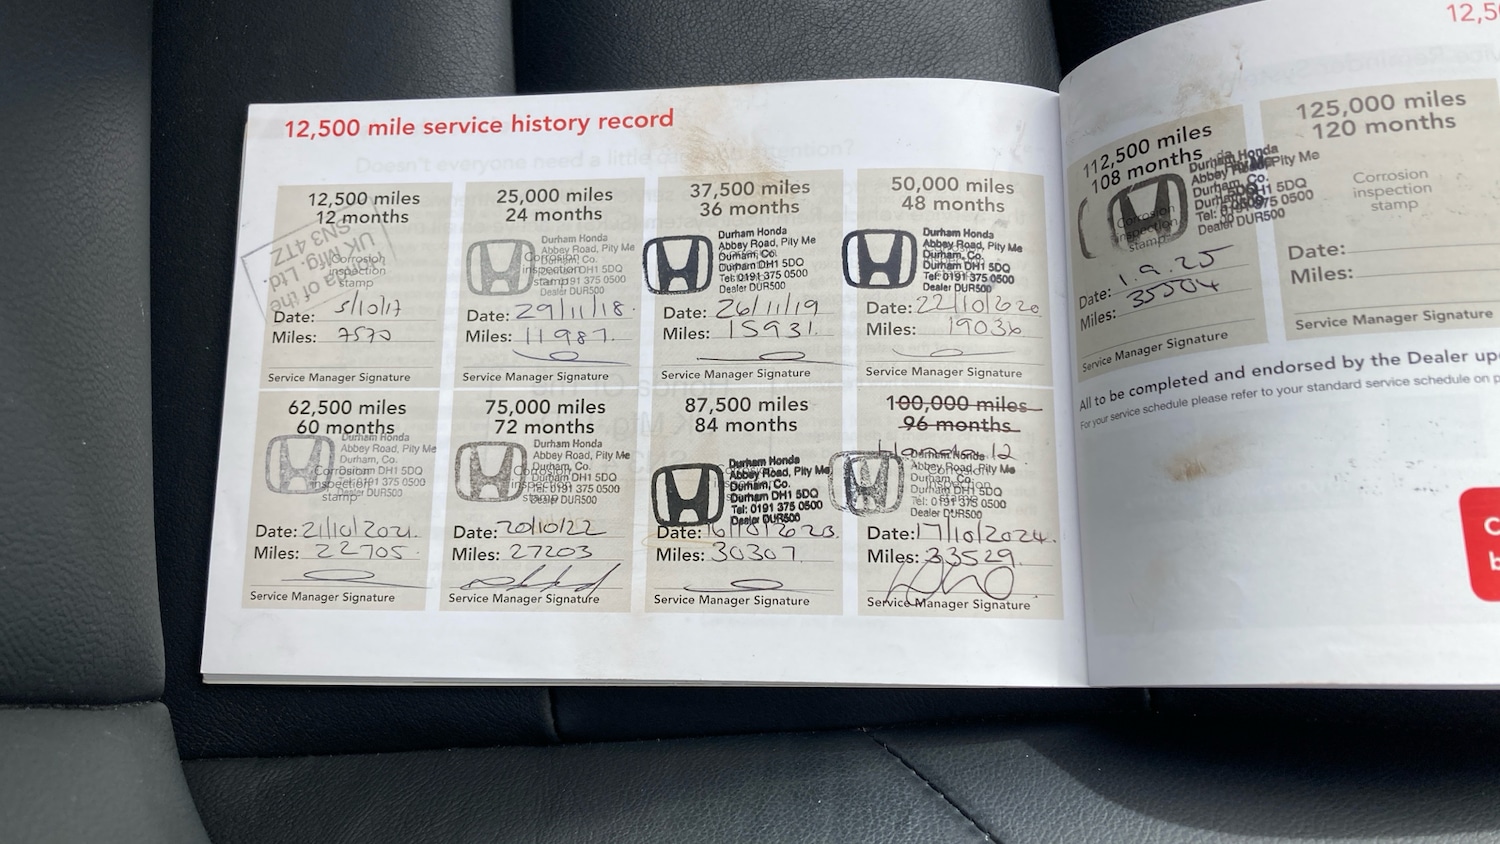 12,500 mile service history record
12,500 miles
12 months
UK Mfg. Ltd.
SN3 4TZ
Corrosion
inspection
stamp
Date: 5/10/17
Miles: 7570
Service Manager Signature
25,000 miles
24 months
Durham Honda
Abbey Road, Pity Me
Durham, Co.
Durham DH1 5DQ
Tel: 0191 375 0500
Dealer DUR500
Corrosion
inspection
stamp
Date: 29/11/18.
Miles: 11987.
Service Manager Signature
37,500 miles
36 months
Durham Honda
Abbey Road, Pity Me
Durham, Co.
Durham DH1 5DQ
Tel: 0191 375 0500
Dealer DUR500
Date: 26/11/19
Miles: 15931.
Service Manager Signature
50,000 miles
48 months
Durham Honda
Abbey Road, Pity Me
Durham, Co.
Durham DH1 5DQ
Tel: 0191 375 0500
Dealer DUR500
Date: 22/10/2020
Miles: 19036
Service Manager Signature
62,500 miles
60 months
Durham Honda
Abbey Road, Pity Me
Durham, Co.
Durham DH1 5DQ
Tel: 0191 375 0500
Dealer DUR500
Corrosion
inspection
stamp
Date: 21/10/2021.
Miles: 22705.
Service Manager Signature
75,000 miles
72 months
Durham Honda
Abbey Road, Pity Me
Durham, Co.
Durham DH1 5DQ
Tel: 0191 375 0500
Dealer DUR500
Corrosion
inspection
stamp
Date: 20/10/22
Miles: 27203
Service Manager Signature
87,500 miles
84 months
Durham Honda
Abbey Road, Pity Me
Durham, Co.
Durham DH1 5DQ
Tel: 0191 375 0500
Dealer DUR500
Date: 16/10/2023.
Miles: 30307
Service Manager Signature
100,000 miles
96 months
Durham Honda
Abbey Road, Pity Me
Durham, Co.
Durham DH1 5DQ
Tel: 0191 375 0500
Dealer DUR500
Corrosion
inspection
stamp
Date: 17/10/2024.
Miles: 33529.
Service Manager Signature
12,5
112,500 miles
108 months
Durham Honda
Abbey Road, Pity Me
Durham, Co.
Durham DH1 5DQ
Tel: 0191 375 0500
Dealer DUR500
Corrosion
inspection
stamp
Date: 1.9.25
Miles: 35504
Service Manager Signature
125,000 miles
120 months
Corrosion
inspection
stamp
Date:
Miles:
Service Manager Signature
All to be completed and endorsed by the Dealer up
For your service schedule please refer to your standard service schedule on p
C
b